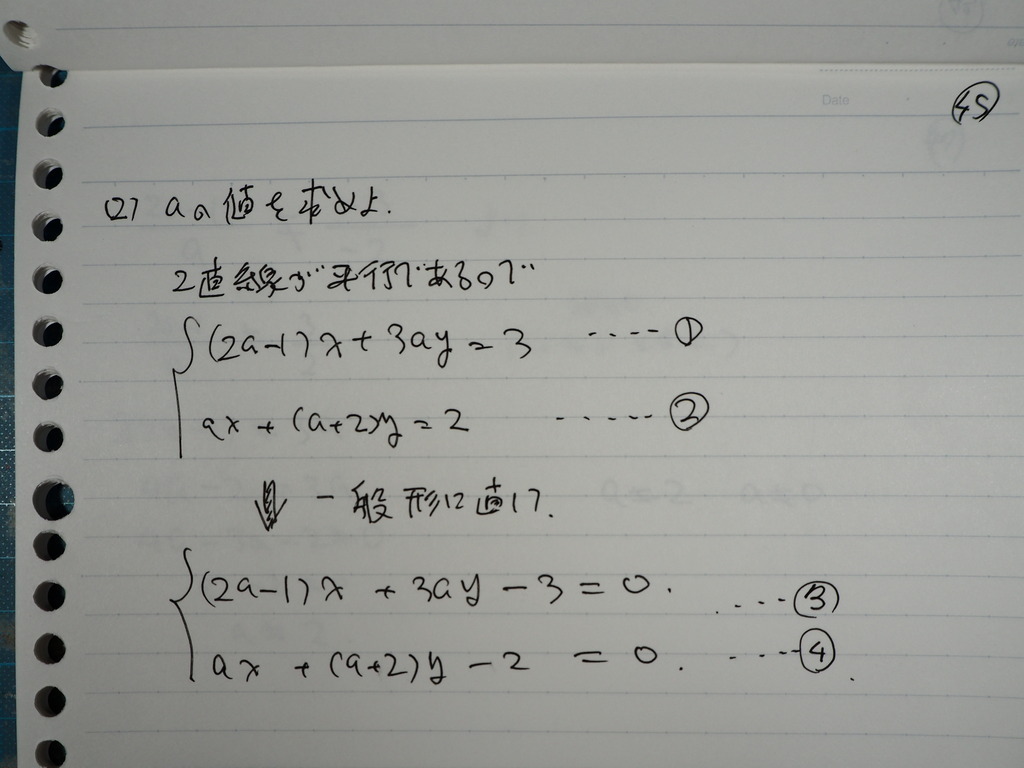 Date
㊺
(2) aの値を求めよ.
2直線が平行であるので
(2a-1)x+3ay=3 ····· ①
ax+(a+2)y=2 ······ ②
⇓ 一般形に直して.
(2a-1)x+3ay-3=0. ····· ③
ax+(a+2)y-2=0. ····· ④